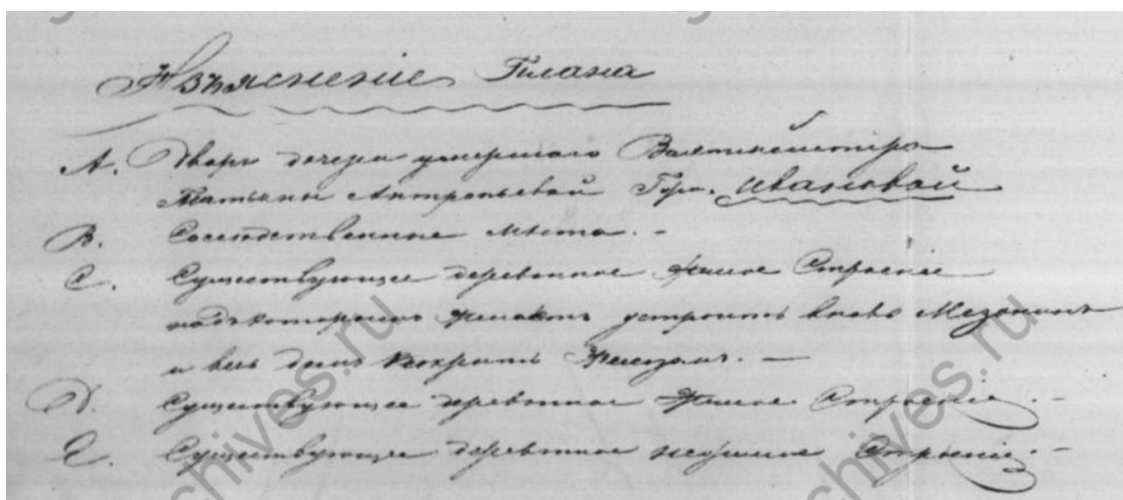 Изъясненіе Плана
А. Дворъ дочери умершаго
Татьяны Антропьевой Гжи. Ивановой
B. Сосѣдственные мѣста. -
C. Существующее деревянное жилое Строеніе
надъ которымъ желаютъ устроить вновь Мезонинъ
и весь домъ покрыть Железомъ. —
D. Существующее деревянное жилое Строеніе. -
E. Существующее деревянное нежилое Строеніе. -
chives.ru
chives.ru